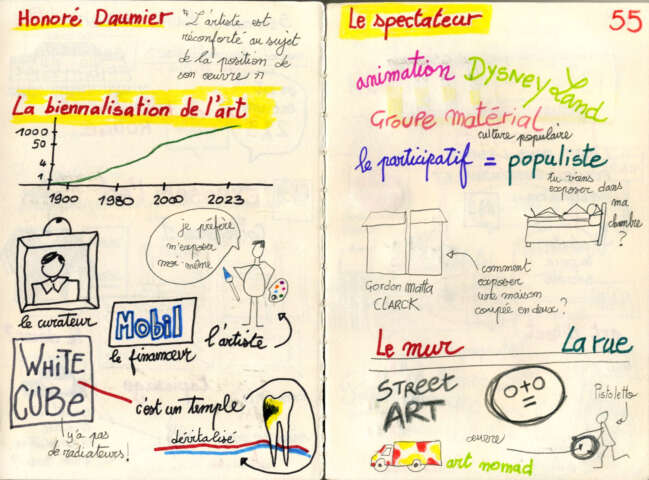 Honoré Daumier
"L'artiste est
réconforté au sujet
de la position de
son œuvre"
La biennalisation de l'art
1000
50
4
1
1900 1980 2000 2023
je préfère
m'exposer
moi-même
le curateur
Mobil
le financeur
l'artiste
WHITE
CUBE
c'est un temple
dévitalisé
y'a pas
de radiateurs!
Le spectateur
55
animation DYSNEYLand
Groupe matérial
culture populaire
le participatif = populiste
tu viens
exposer dans
ma
chambre
?
Gordon Matta
CLARCK
comment
exposer
une maison
coupée en deux?
Le mur
La rue
STREET
ART
0+0
=
Pistoletto
œuvre
art nomad